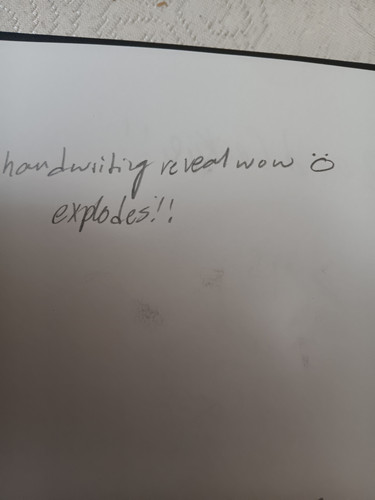 handwriting reveal wow ö
explodes!!